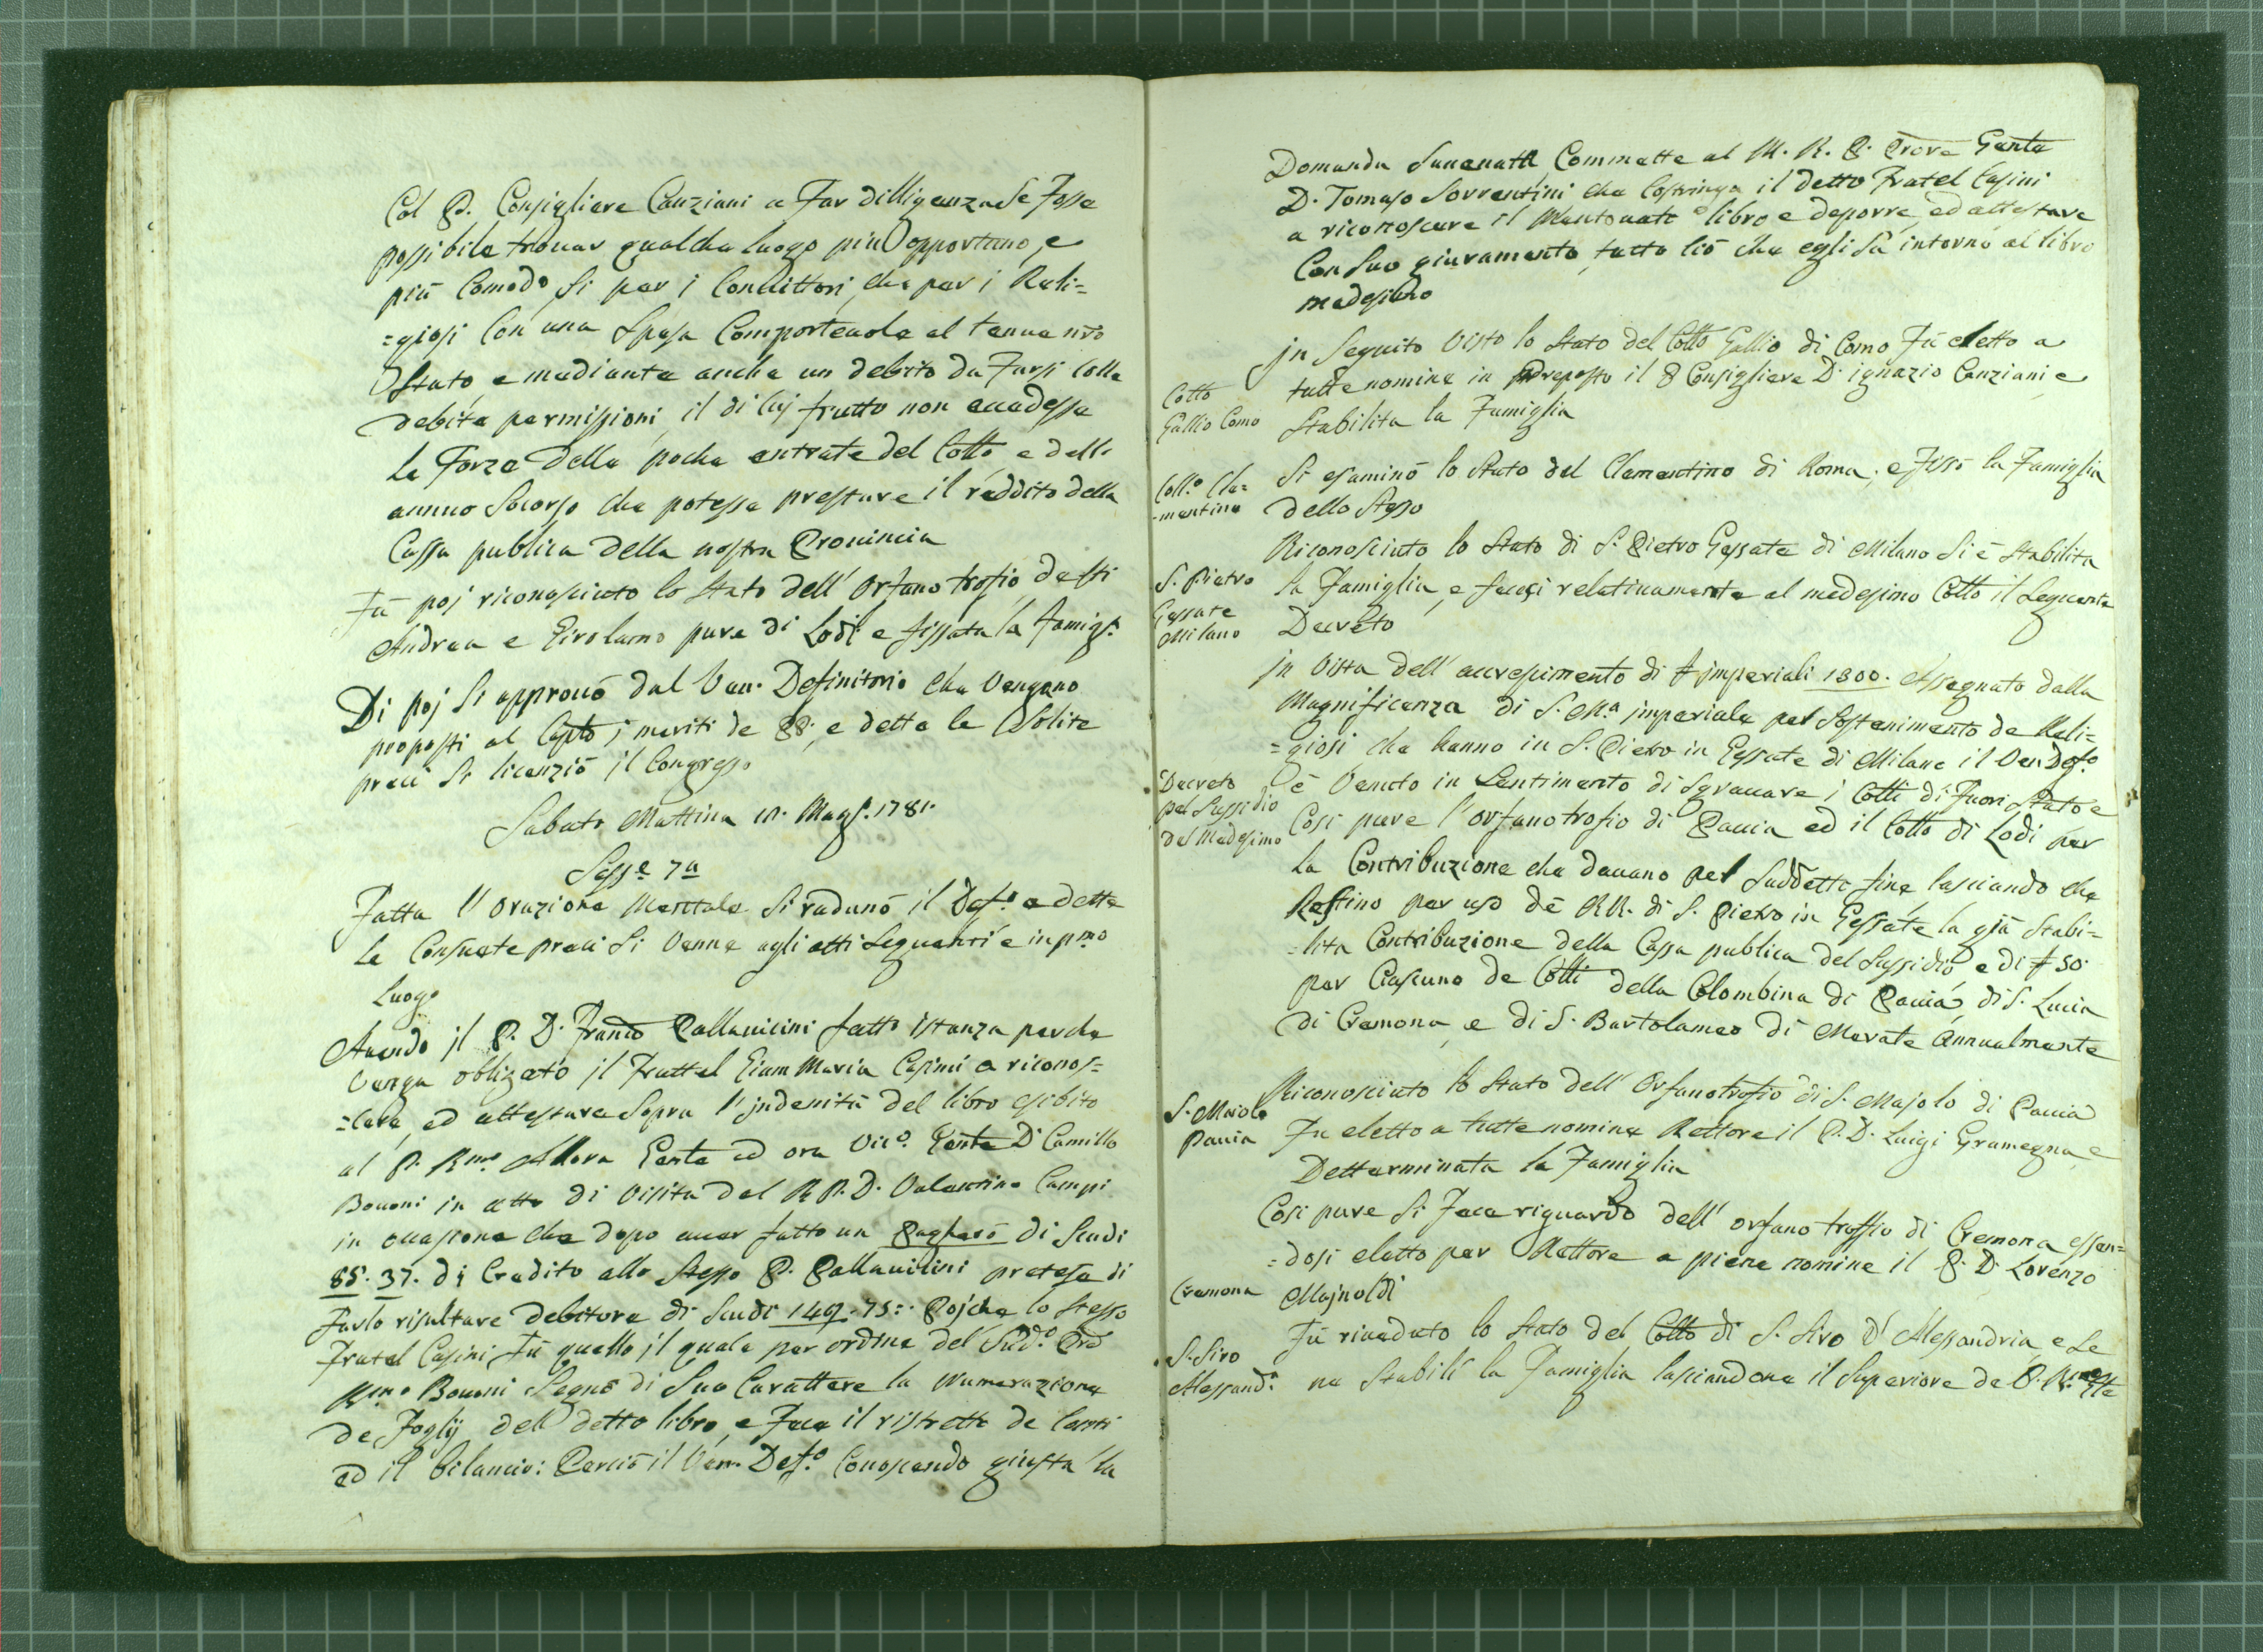 Col P. Consigliere Canziani a Far dilligenza Se Fosse
possibile trouar qualche luogo più opportuno, e
più Comodo si per i Condittori, che per i Reli=
=giosi Con una Spesa Comporteuole al tenue nro
Stato, e mediante anche un debito da Farsi Colle
debite permissioni, il di cuj frutto non eccedesse
le Forze delle poche entrate del Collo e dell'
annuo Socorso che potesse prestare il reddito della
Cassa publica della nostra Prouincia
Fù poj riconosciuto lo Stato dell' Orfanotrofio de SSti
Andrea e Girolamo pure di Lodi e fissata la Famigl.a
Di poj Si approuò dal Ven. Definitorio che Vengano
proposti al Capto j meriti de PP., e dette le Solite
preci Si licenziò il Congresso
Sabato Mattina 12. Magg. 1781.
Sess.e 7a
Fatta l' orazione Mentale Si radunò il Def.o e dette
le Consuete preci Si Venne agli atti Seguenti e in pmo
Luogo
Auendo jl P. D. Franco Pallauicini fatto istanza perche
Venga obligato jl Frattel Giam Maria Casini a riconos=
=cere, ed attestare Sopra l' jndenità del libro esibito
al P. Rmo Allora Gente ed ora Vic.o Gente D. Camillo
Bouoni in atto di Visita del R P. D. Valentino Campi
in occasione che dopo auer fatto un Pagherò di Scudi
85. 37. di Credito allo Stesso P. Pallauicini pretese di
Farlo risultare debitore di Scudi 149. 75:. Pojche lo Stesso
Fratel Casini Fù quello jl quale per ordine del Sud.o Pre
Rmo Bouoni Segnò di Suo Carattere la Numerazione
de Foglij del detto libro, e Fece il ristretto de Conti
ed il bilancio: Perciò il Ven. Def.o Conoscendo giusta la
Domanda Sunenatta Commette al M. R. P. Prove Gente
D. Tomaso Sorrentini che Costringa il detto Fratel Casini
a riconoscere il Mentouato libro e deporre, ed attestare
Con Suo giuramento tutto Ciò che egli Sà intorno al libro
medesimo
jn Seguito Visto lo Stato del Collo Gallio di Como Fù eletto a
Collo
Gallio Como
tutte nomine in Preposto il P Consigliere D. ignazio Canziani, e
Stabilita la Famiglia
Coll.o Cle=
-mentino
Si esaminò lo Stato del Clementino di Roma, e Fissò la Famiglia
dello Stesso
S. Pietro
Gessate
Milano
Riconosciuto lo Stato di S. Pietro Gessate di Milano Si è Stabilita
la Famiglia, e fecesi relatiuamente al medesimo Collo il Seguente
Decreto
jn Vista dell' accrescimento di £ jmperiali 1300. Assegnato dalla
Magnificenza di S. M.a jmperiale pel Sostenimento de Reli=
=giosi che hanno in S. Pietro in Gessate di Milano il Ven Def.o
Decreto
pel Sussidio
del Medesimo
è Venuto in Sentimento di Sgrauare i Colli di Fuori Stato e
Cosi pure l' orfanotrofio di Pauia ed il Collo di Lodi per
la Contribuzione che dauano pel Suddetto fine lasciando che
Restino per uso de RR. di S. Pietro in Gessate la già Stabi=
=lita Contribuzione della Cassa publica del Sussidio, e di £ 50.
per Ciascuno de Colli della Colombina di Pauia, di S. Lucia
di Cremona, e di S. Bartolameo di Merate annualmente
S. Maiolo
Pauia
Riconosciuto lo Stato dell' Orfanotrofio di S. Majolo di Pauia
Fu eletto a tutte nomine Rettore il P. D. Luigi Gramegna, e
Detterminata la Famiglia
Cosi pure Si Fece riguardo dell' orfano troffio di Cremona essen=
=dosi eletto per Rettore a piene nomine il P. D. Lorenzo
Cremona
Majnoldi
S. Siro
Alessand.a
Fù riueduto lo Stato del Collo di S. Siro d' Alessandria, e Se
ne Stabilì la Famiglia lasciandone il Superiore de P. Rmo